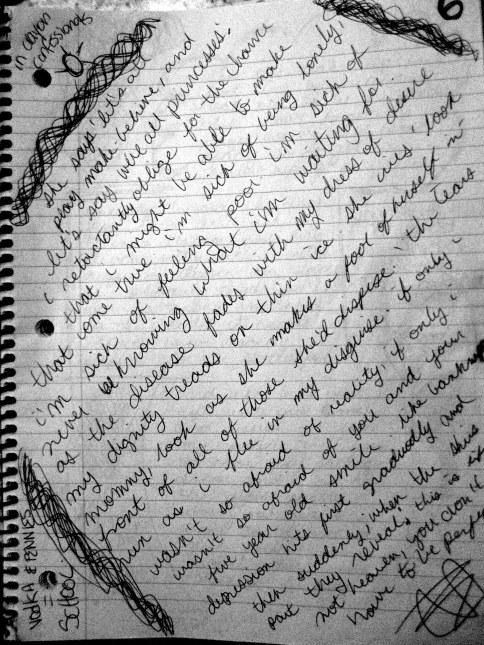 in crayon
confessionals
6
she says 'let's all
play make-believe, and
let's say we're all princesses.'
i reluctantly oblige for the chance
that i might be able to make
that come true. i'm sick of being lonely,
i'm sick of feeling poor i'm sick of
never knowing what i'm waiting for.
as the disease fades with my dress of desire
my dignity treads on thin ice she cries, 'look
mommy, look as she makes a fool of herself in
front of all of those she'd dispose.' the tears
run as i flee in my disguise. if only i
wasn't so afraid of reality, if only i
wasn't so afraid of you and your
five year old smile. like bankrup
depression hits first gradually and
then suddenly, when the skies
part they reveal: this is
not heaven, you don't
have to be perfe
VODKA & PENNIES
=
SCHOOL